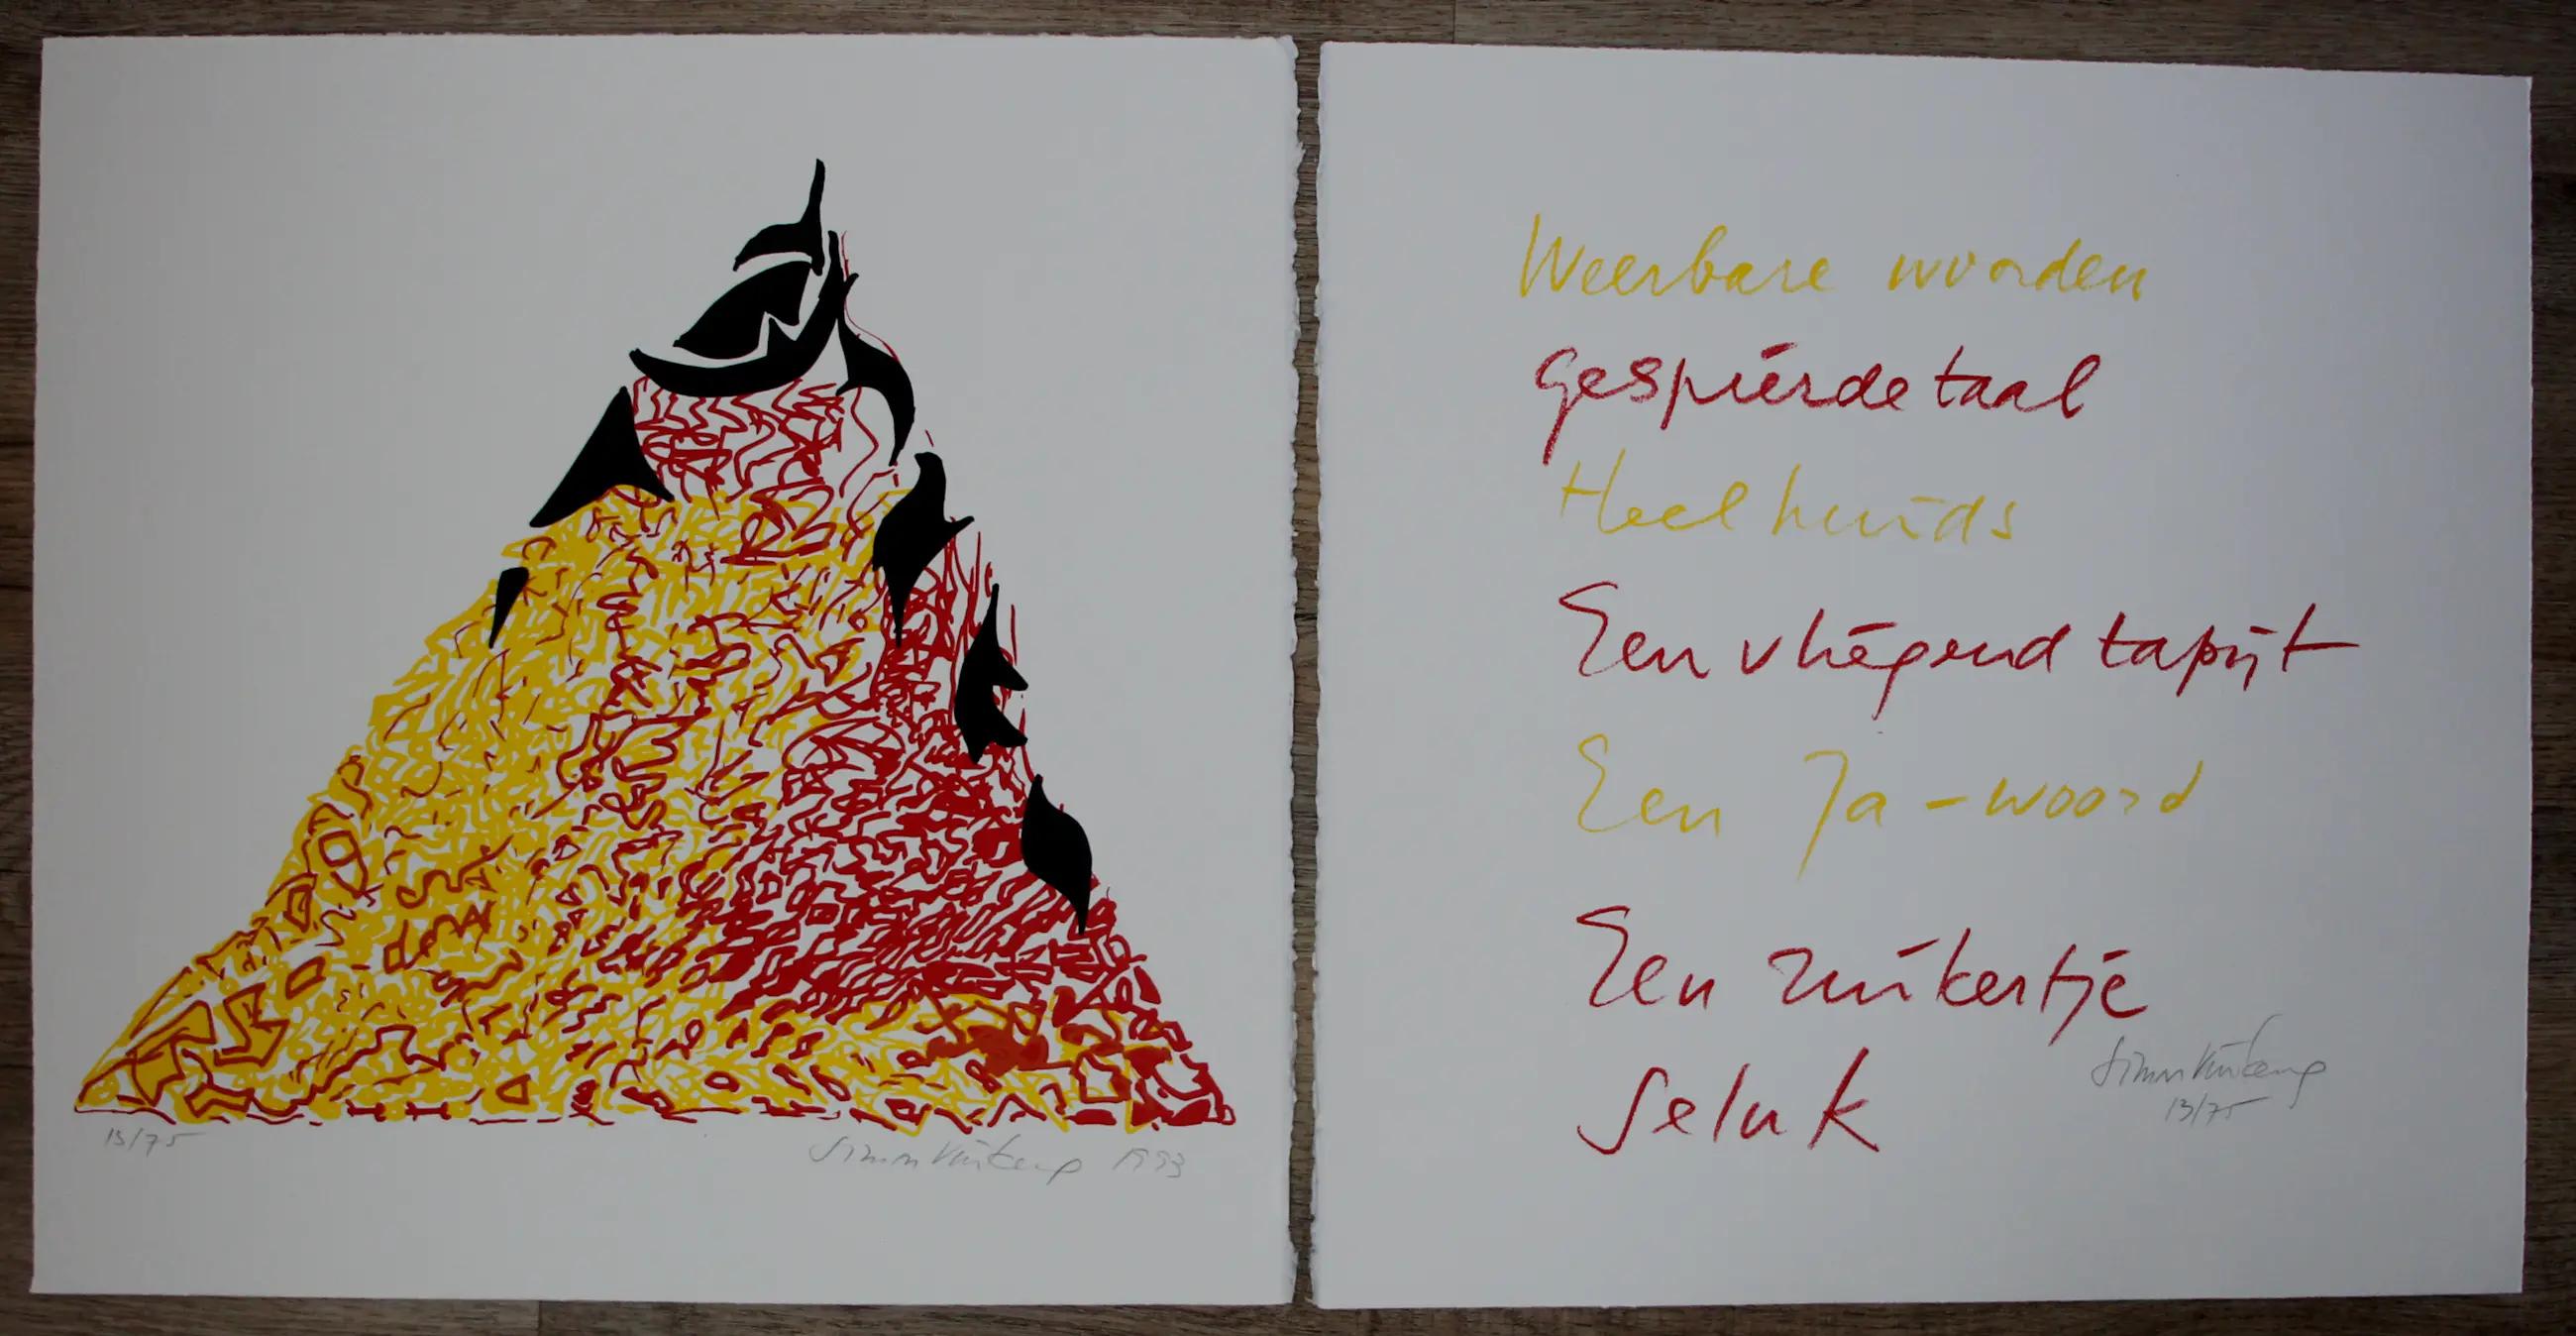 13/75
Simon Vinkenoog 1993
Weerbare woorden
gespierde taal
Heelhuids
Een vliegend tapijt
Een Ja-woord
Een zuikertje
geluk
Simon Vinkenoog
13/75